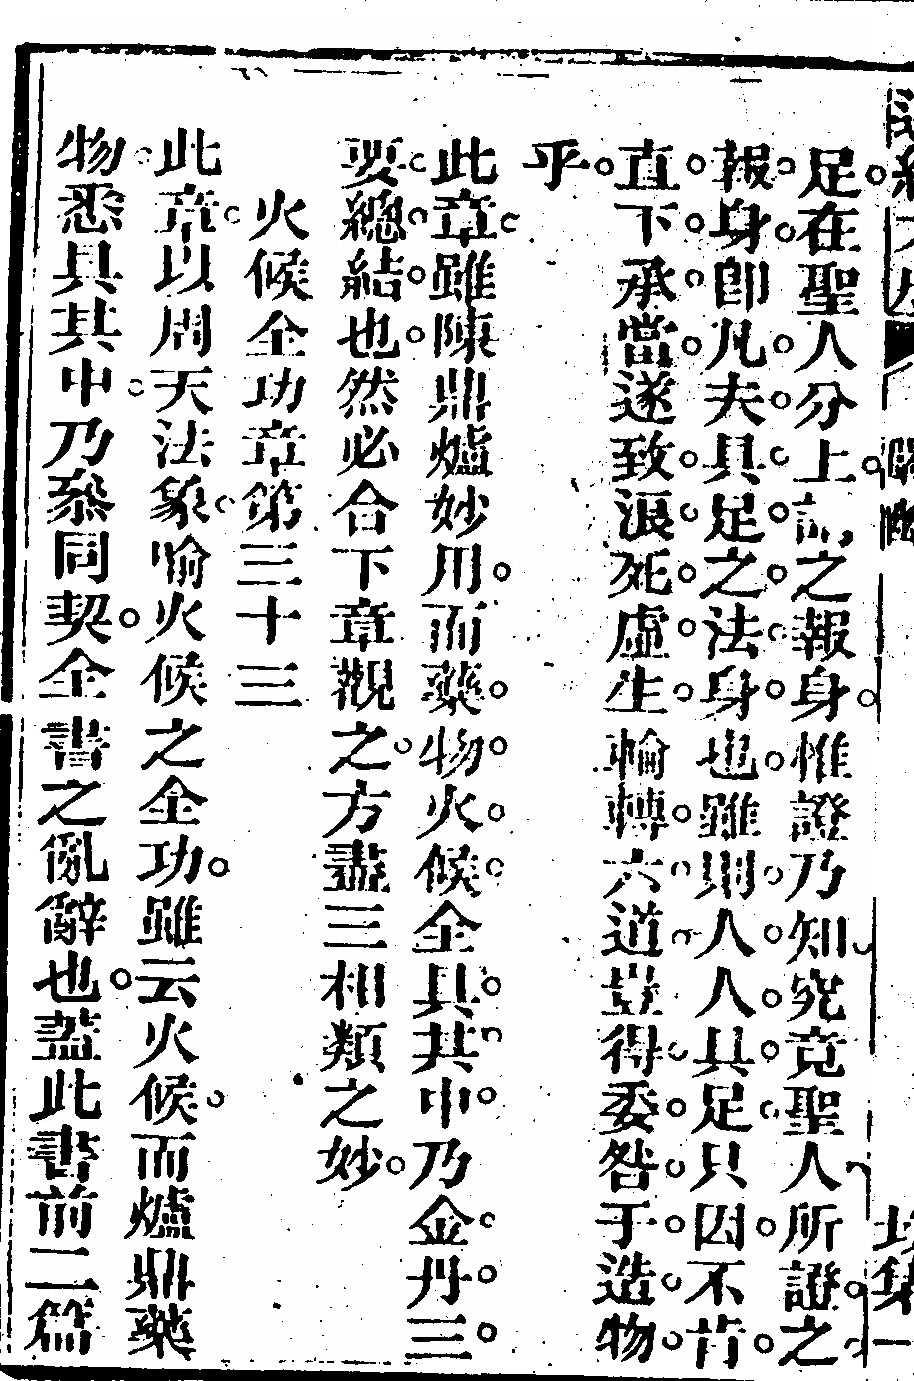 足在聖人分上謂之報身惟證乃知究竟聖人所證之
報身卽凡夫具足之法身也雖則人人具足只因不肯
直下承當遂致浪死虛生輪轉六道豈得委咎于造物
乎
此章雖陳鼎爐妙用而藥物火候全具其中乃金丹三
要總結也然必合下章觀之方盡三相類之妙
火候全功章第三十三
此章以周天法象喻火候之全功雖云火候而爐鼎藥
物悉具其中乃叅同契全書之亂辭也蓋此書前二篇